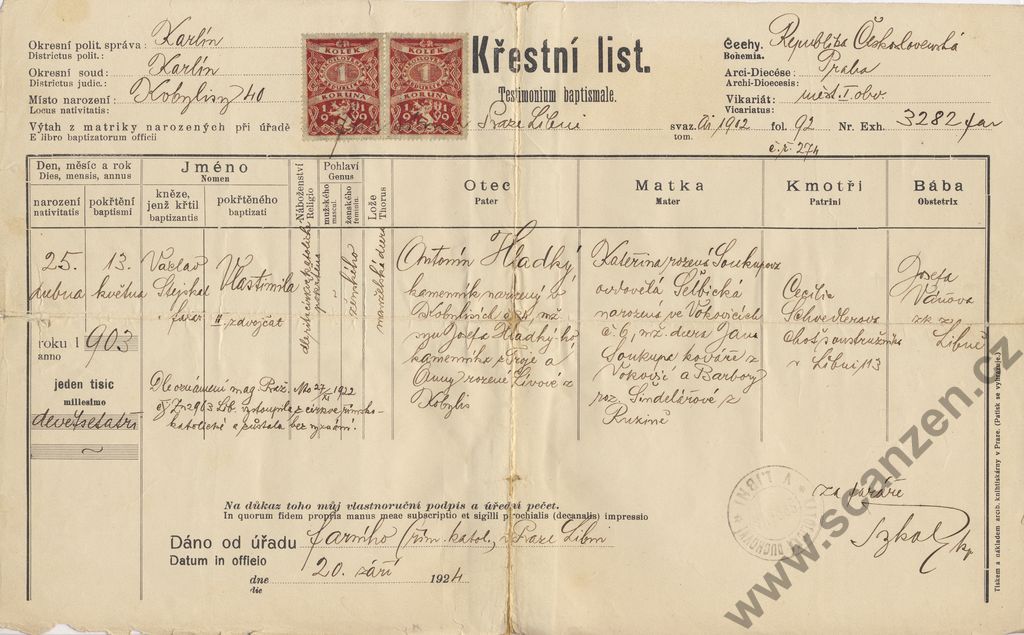 Okresní polit. správa: Karlín
Districtus polit.:
Okresní soud: Karlín
Districtus judic.:
Místo narození: Kobylisy 40
Locus nativitatis:
Výtah z matriky narozených při úřadě
E libro baptizatorum officii
KOLEK
1
KORUNA
KOLEK
1
KORUNA
Křestní list.
Testimonium baptismale.
Praze Libni
Čechy. Republika Československá
Bohemia.
Arci-Diecése: Praha
Archi-Dioecesis:
Vikariát: měst. I. obv.
Vicariatus:
svaz. 1902 fol. 92 Nr. Exh. 3282 far
tom.
č. ř. 274
Den, měsíc a rok
Dies, mensis, annus
narození
nativitatis
pokřtění
baptismi
Jméno
Nomen
kněze,
jenž křtil
baptizantis
pokřtěného
baptizati
Náboženství
Religio
Pohlaví
Genus
mužského
mascul.
ženského
feminin.
Lože
Thorus
Otec
Pater
Matka
Mater
Kmotři
Patrini
Bába
Obstetrix
25. dubna
13. května
roku 1903
anno
jeden tisíc
millesimo
devětsetatři
Václav
Stejskal
farář
Vlastimila
II. zdvojčat
ženského
manželská dcera
Antonín Hladký,
kameník narozený v
Kobylisích
syn Josefa Hladkého
kameníka z Troje a
Anny rozené
Kobylis
Kateřina rozená Soukupova
ovdovělá
narozená ve Vokovicích
č. 9, mž. dcera Jana
Soukupa kováře z
Vokovic a Barbory
roz. Šindelářové z
Ruzině
Cecilie
choť soustružníka
v Libni 113
Josefa
Váňova
zk. z
Libně
Dle oznámení mag. Praž. 27/XI 1922
vystoupila z církve římsko-
katolické a zůstala bez vyznání.
Na důkaz toho můj vlastnoruční podpis a úřední pečet.
In quorum fidem propria manus meae subscriptio et sigilli parochialis (decanalis) impressio
Dáno od úřadu farního (řím. katol.) v Praze Libni
Datum in officio
dne 20. září 1924
die
V LIBNI
za faráře
Tiskem a nákladem arcb. knihtiskárny v Praze. (Patisk se vyhrazuje.)
www.scanzen.cz